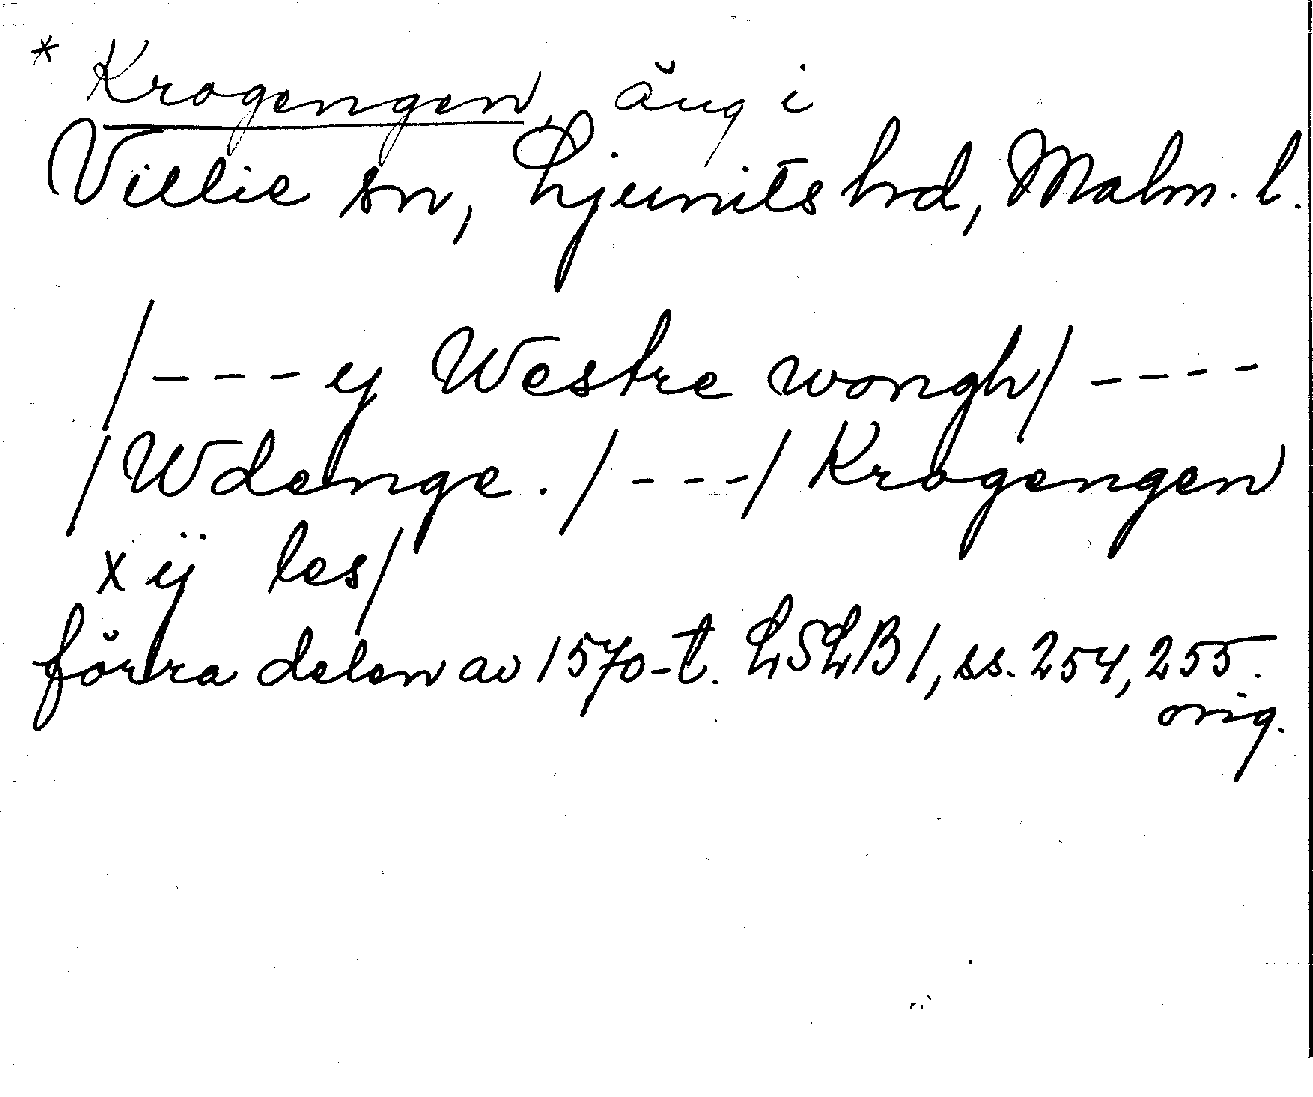 * Krogengen, äng i
Villie sn, Ljunits hd, Malm. l.
/--- y Westre wongh/ ----
/Wdenge. / ---/ Krogengen
xij les/
förra delen av 1570-t. LSLB 1, ss. 254, 255.
orig.